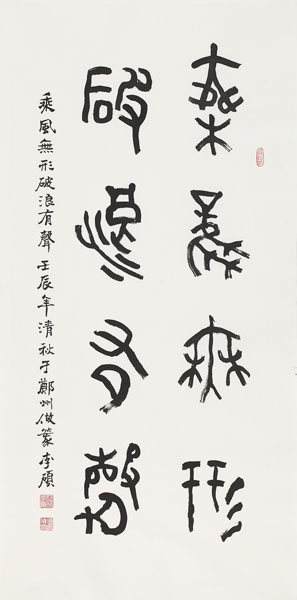 乘風無形
破浪有聲
乘風無形破浪有聲 壬辰年清秋于鄭州做篆 李碩